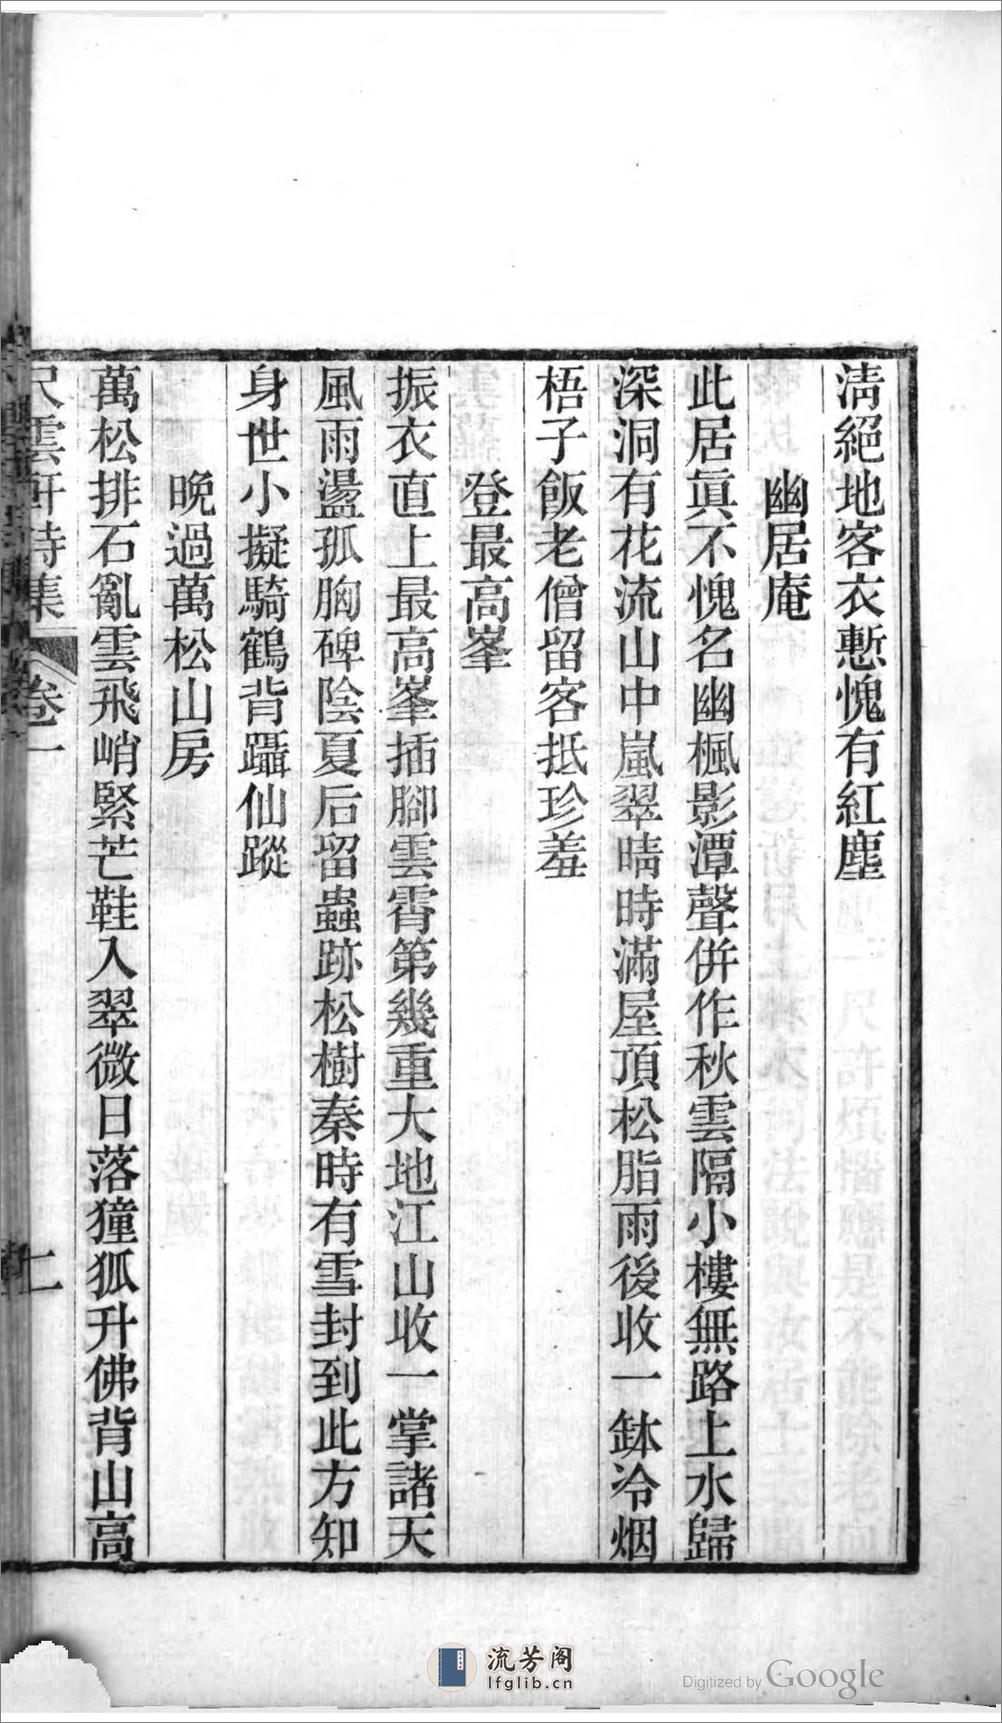 淸絕地客衣慙愧有紅塵
幽居庵
此居眞不愧名幽楓影潭聲併作秋雲隔小樓無路上水歸
深洞有花流山中嵐翠晴時滿屋頂松脂雨後收一鉢冷烟
梧子飯老僧留客抵珍羞
登最高峯
振衣直上最高峯插腳雲霄第幾重大地江山收一掌諸天
風雨盪孤胸碑陰夏后留蟲跡松樹秦時有雪封到此方知
身世小擬騎鶴背躡仙蹤
晚過萬松山房
萬松排石亂雲飛峭緊芒鞋入翠微日落獞狐升佛背山高
尺雲軒詩集 卷一 七
流芳阁
lfglib.cn
Digitized by Google